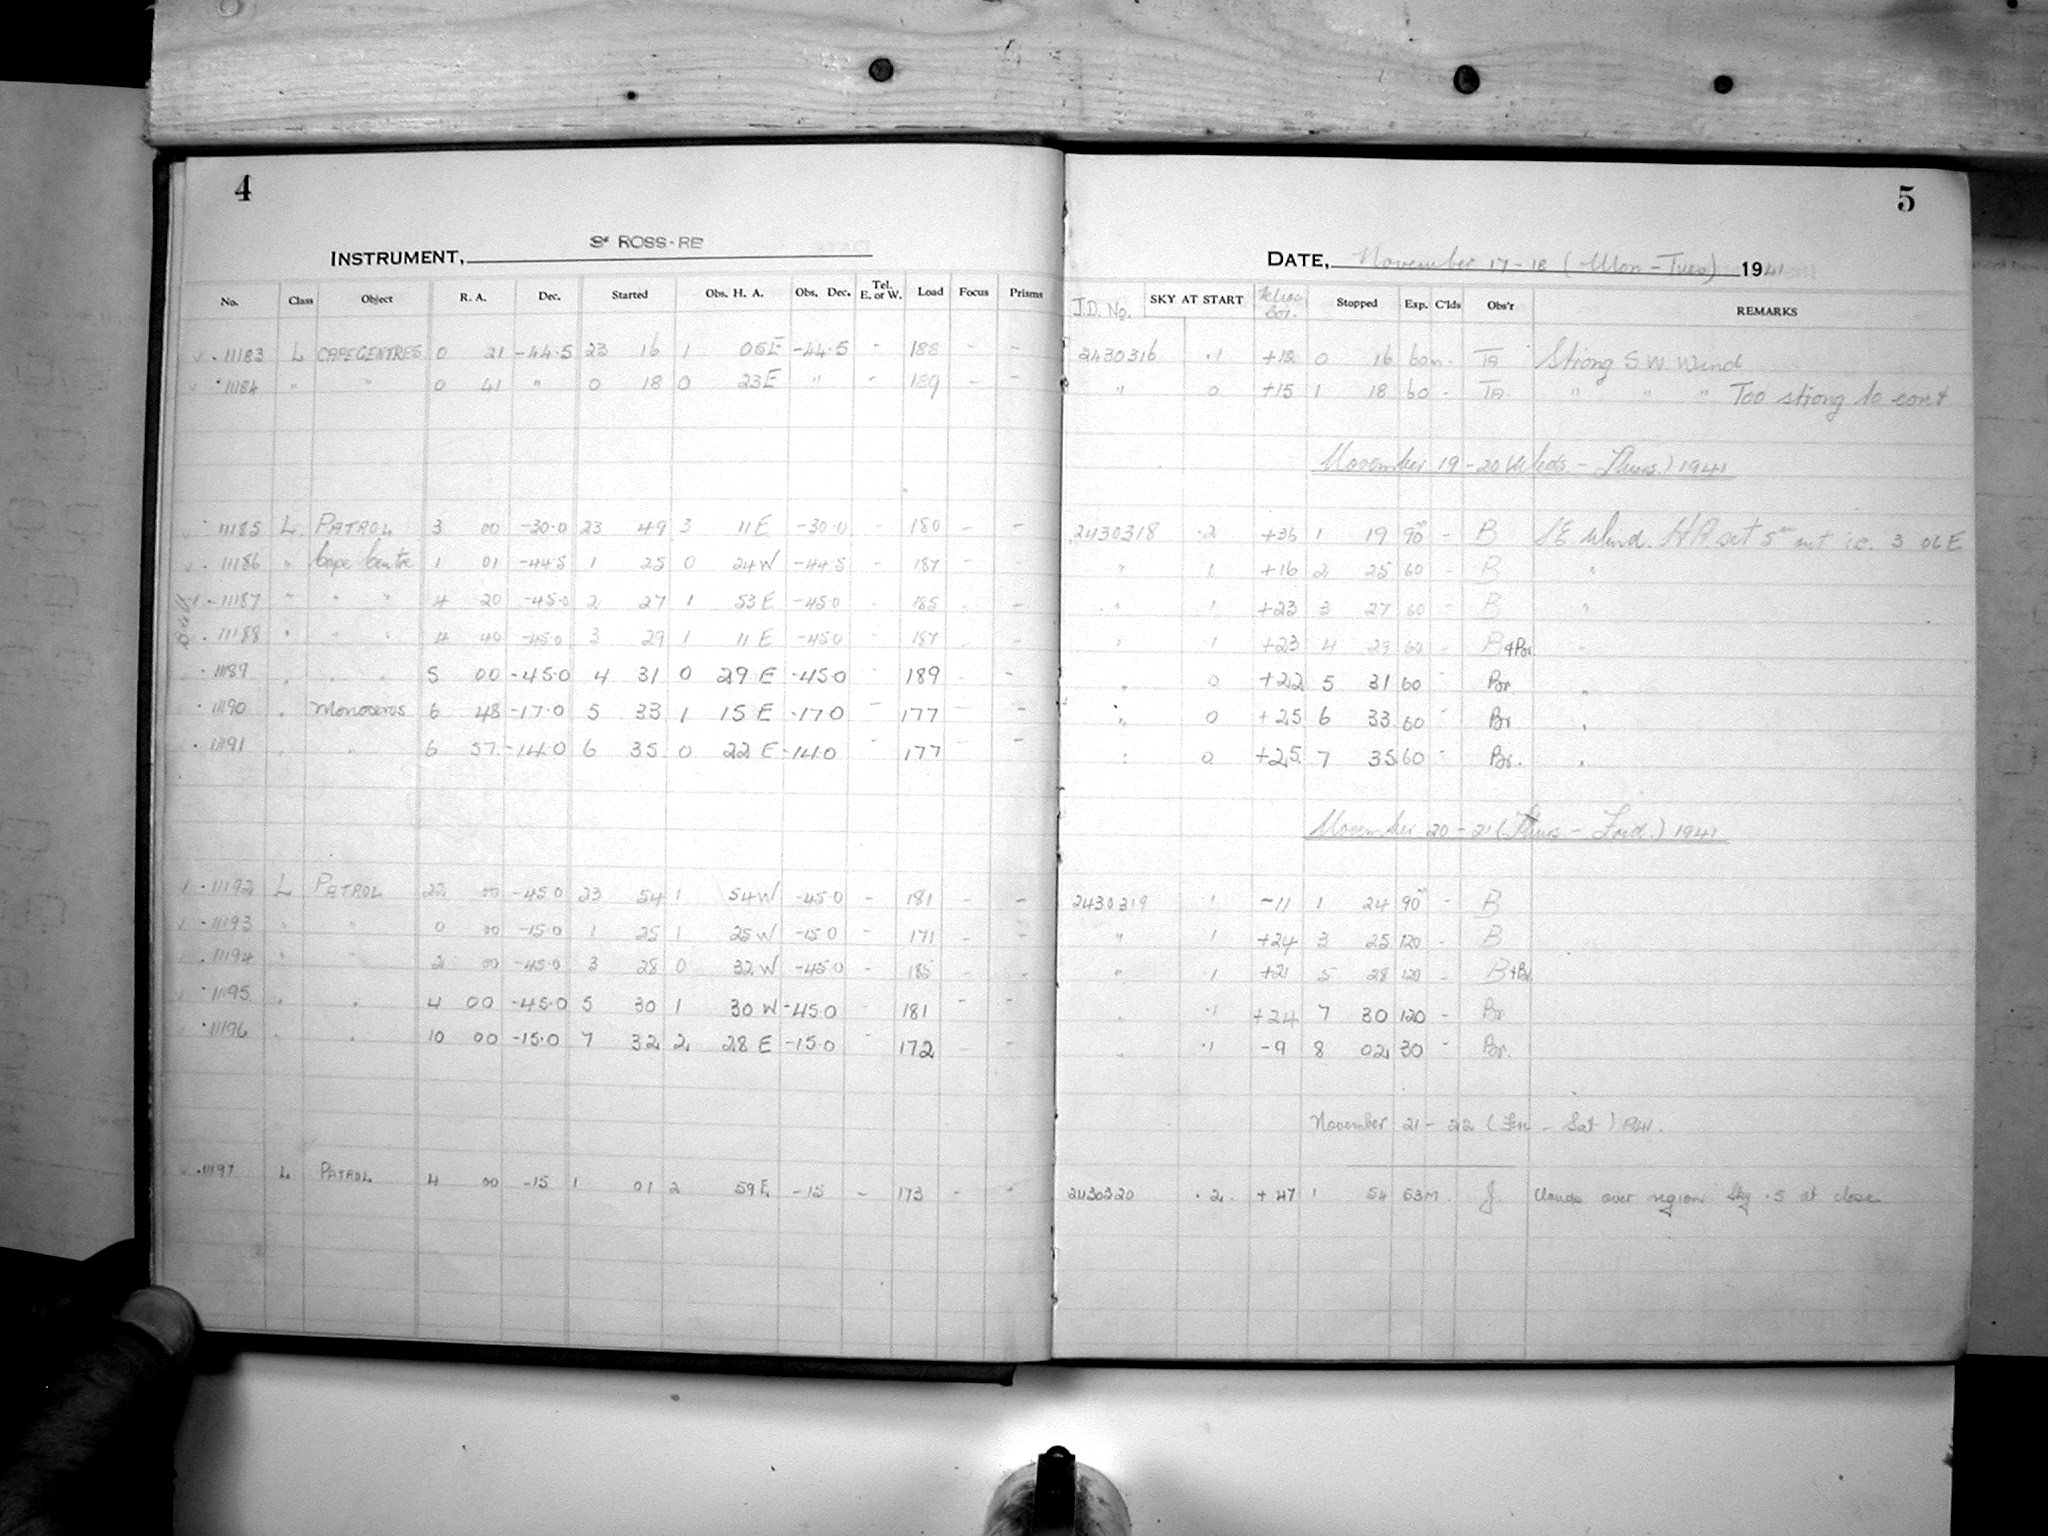 4
INSTRUMENT, Sr ROSS-RE
No. Class Object R. A. Dec. Started Obs. H. A. Obs. Dec. Tel. E. or W. Load Focus Prisms
11183 L CAPE CENTRES 0 21 -44.5 23 16 1 05E -44.5 - 188 - -
11184 " " 0 41 " 0 18 0 23E " - 189 - -
11185 L PATROL 3 00 -30.0 23 49 3 11 E -30.0 - 180 - -
11186 " Cape Centre 1 01 -44.5 1 25 0 24W -44.5 - 187 - -
11187 " " " 4 20 -45.0 2 27 1 53 E -45.0 - 185 - -
11188 " " " 4 40 -45.0 3 29 1 11 E -45.0 - 187 - -
11189 " " " 5 00 -45.0 4 31 0 29 E -45.0 - 189 - -
11190 " Monoceros 6 48 -17.0 5 33 1 15 E -17.0 - 177 - -
11191 " " 6 57 -14.0 6 35 0 22 E -14.0 - 177 - -
11192 L PATROL 22 00 -45.0 23 54 1 54W -45.0 - 181 - -
11193 " " 0 00 -15.0 1 25 1 25 W -15.0 - 171 - -
11194 " " 2 00 -45.0 3 28 0 32 W -45.0 - 185 - -
11195 " " 4 00 -45.0 5 30 1 30 W -45.0 - 181 - -
11196 " " 10 00 -15.0 7 32 2 28 E -15.0 - 172 - -
11197 L PATROL 4 00 -15 1 01 2 59 E -15 - 173 - -
5
DATE, November 17-18 (Mon - Tues) 1941
J.D. No. SKY AT START Stopped Exp. C'lds Obs'r REMARKS
2430316 .1 +12 0 16 60m - TA Strong S W Wind
" 0 +15 1 18 60 - TA " " " Too strong to cont
November 19-20 (Weds - Thurs.) 1941
2430318 .2 +36 1 19 90m - B S E Wind. HA set 5m out i.e. 3 06 E
" 1 +16 2 25 60 - B "
" 1 +23 3 27 60 - B "
" 1 +23 4 29 60 - B+Br. "
" 0 +22 5 31 60 - Br. "
" 0 +25 6 33 60 - Br "
" 0 +25 7 35 60 - Br. "
November 20-21 (Thurs - Frid.) 1941
2430319 1 -11 1 24 90m - B
" 1 +24 3 25 120 - B
" .1 +21 5 28 120 - B+Br.
" .1 +24 7 30 120 - Br
" .1 -9 8 02 30 - Br.
November 21-22 (Fri - Sat) 1941.
2430320 .2. +47 1 54 53m. J. Clouds over region Sky .5 at close